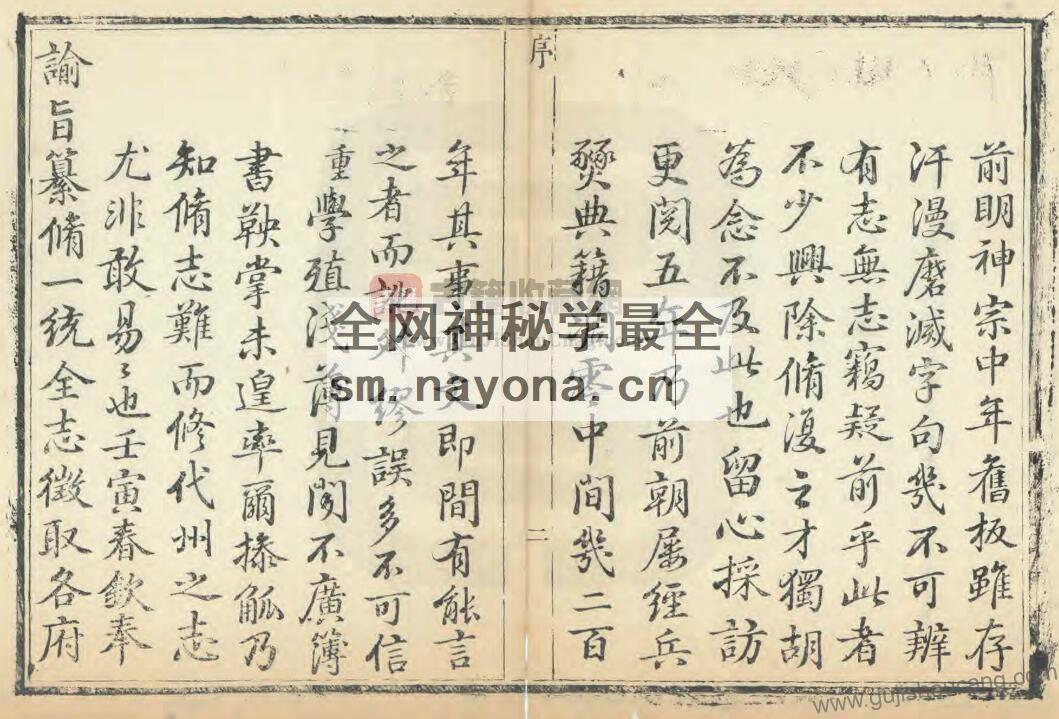 前明神宗中年舊板雖存
汗漫磨滅字句幾不可辨
有志無志竊疑前乎此者
不少興除脩復之才獨胡
為念不及此也留心採訪
更閱五年乃前朝屢經兵
燹典籍零中間幾二百
序
二
年其事其文即間有能言
之者而訛舛繆誤多不可信
重學殖淺薄見聞不廣簿
書鞅掌未遑率爾操觚乃
知脩志難而修代州之志
尤非敢易々也壬寅春欽奉
諭旨纂脩一統全志徵取各府
全网神秘学最全
sm.nayona.cn
www.gujishoucang.com